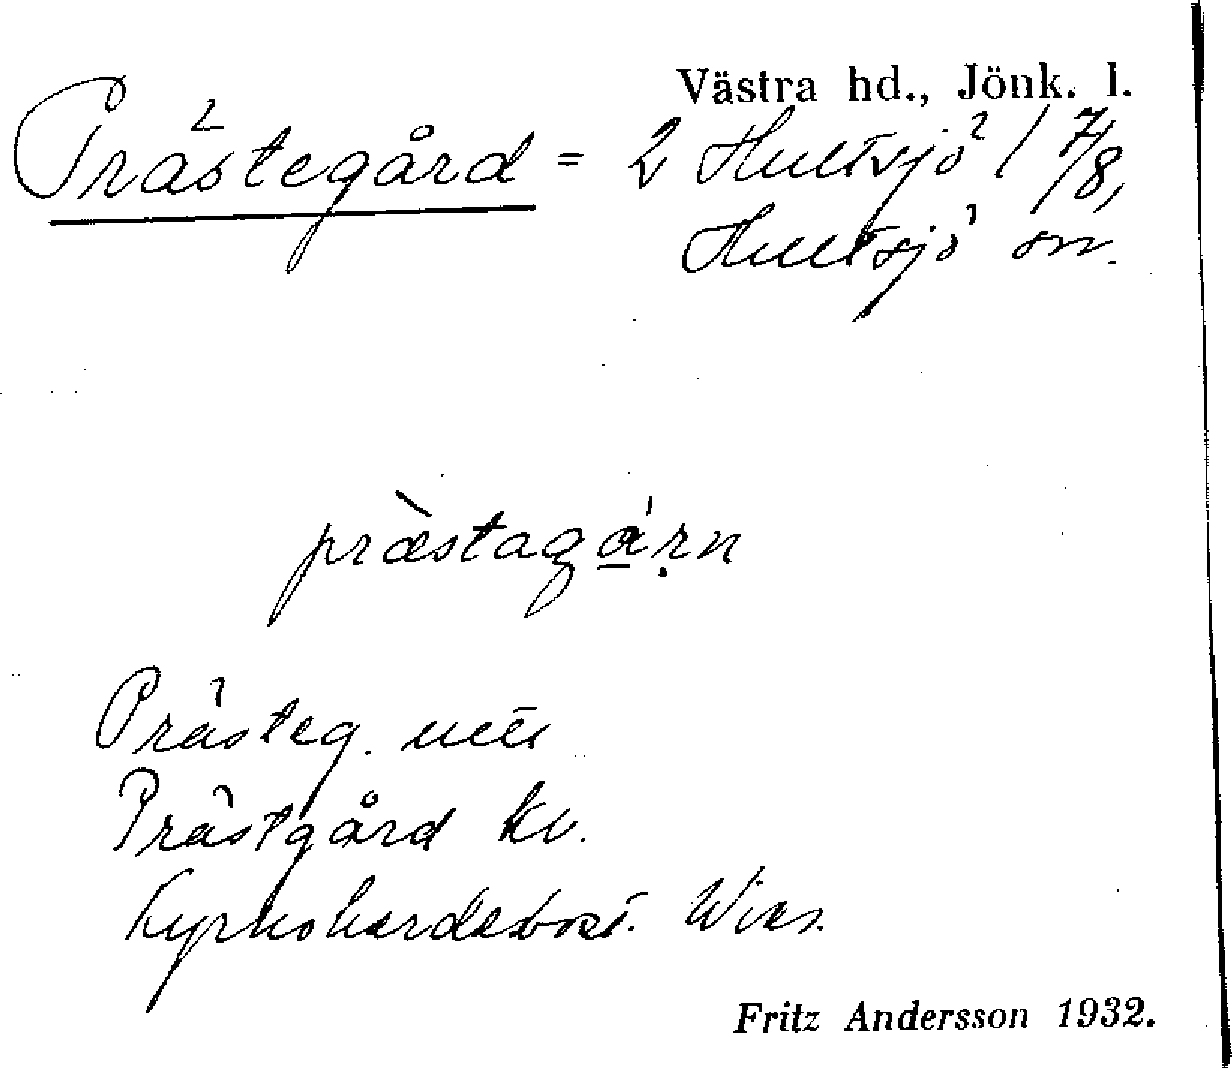 Västra hd., Jönk. l.
Prästegård = 2 Hultsjö 1 7/8,
Hultsjö sn.
præ̀stagá̱ṛn
Prästeg.
Prästgård kv.
Kyrkoherdebost.
Fritz Andersson 1932.